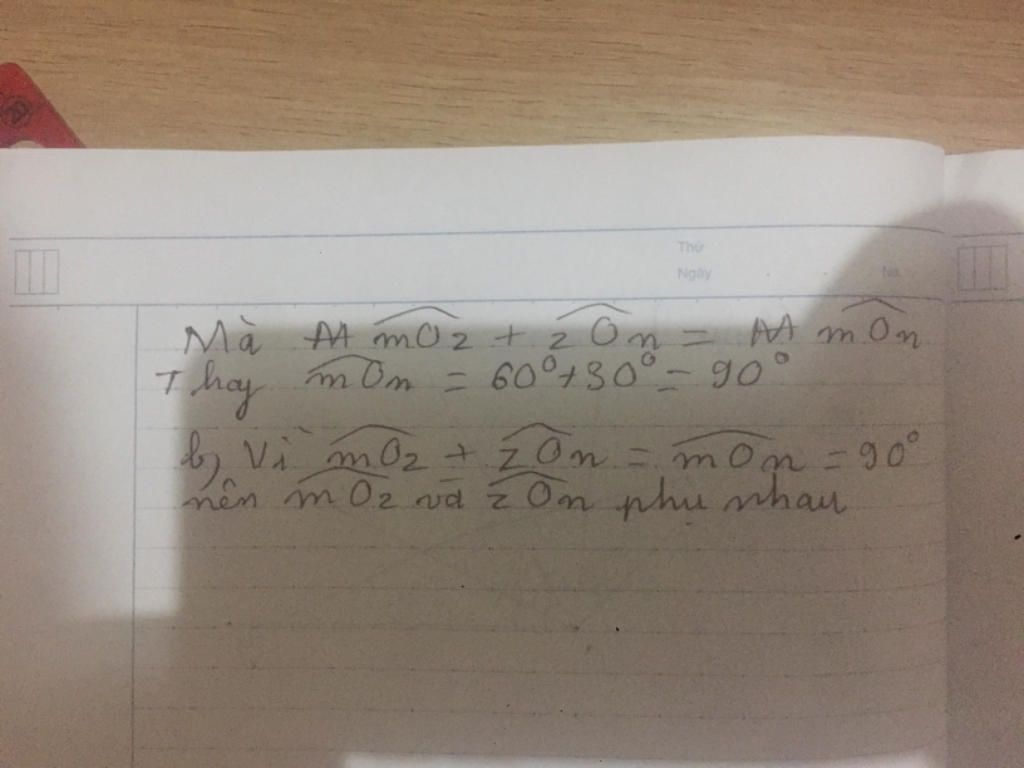 20
Thứ
Ngày
Na
Mà mOz + zOn = mOn
Thay mOn = 60° + 30° = 90°
b, Vì mOz + zOn = mOn = 90°
nên mOz và zOn phụ nhau